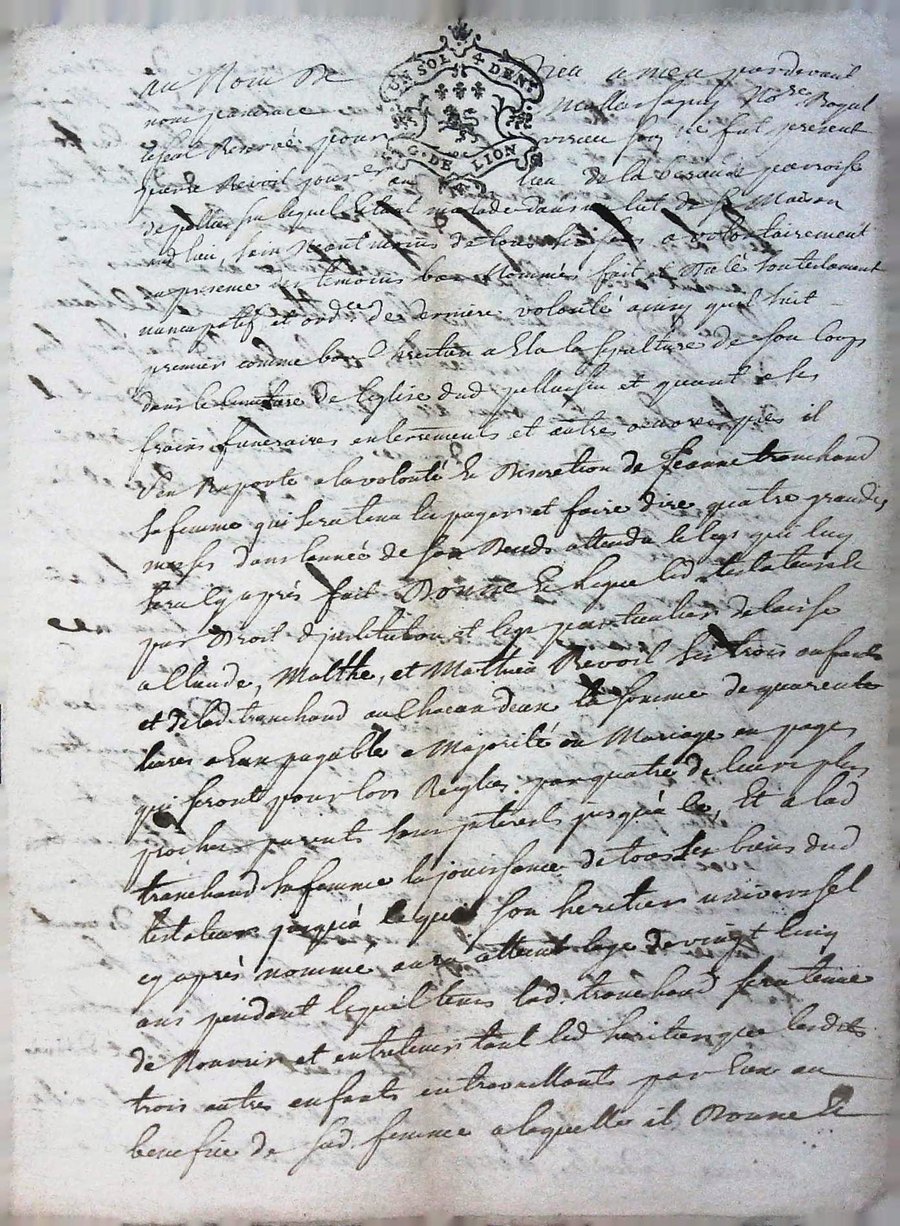 UN SOL 4 DENI
G. DE LION
au Nom De Dieu amen pardevant
nous Notre Royal
Reservé pour fut present
pierre Revoil lieu de la parroisse
de pellussin lequel Etant malade dans un lit de sa Maison
aud lieu, sain neantmoins de tous ses sens a volontairement
en presence des temoins bas Nommés fait et son testament
nuncupatif et ordce de derniere volonté ainsy quil suit
premier comme bon Chretien a Elu la sepulture de son Corps
dans le Cimetiere de leglise dud pellussin et quant a ses
frais funeraires enterrements et autres oeuvres pies il
s'en Raporte a la volonté et Discretion de Jeanne tranchand
sa femme qui sera tenu les payer et faire dire quatre grandes
messes dans lannée de son Deceds attendu le legs qui luy
sera Cy après fait Donne et legue led testateur
par Droit d'institution et legs particulier delaisse
a Claude, Malthe, et Mathieu Revoil ses trois enfants
et de lad tranchand au Chacun deux la somme de quarente
livres a Eux payable a Majorité ou Mariage en payes
qui seront pour lors Reglées par quatre de leurs plus
proches parents sans jnterests jusqua ce, Et a lad
tranchand sa femme la jouissance de tous ses biens dud
testateur jusqua ce que son heritier universel
cy après nommé aura atteint lage de vingt Cinq
ans pendant lequel tems lad tranchand sera tenue
de Nourrir et entretenir tant led heritier que lesdts
trois autres enfants en travaillants par Eux au
benefice de sad femme a laquelle il Donne